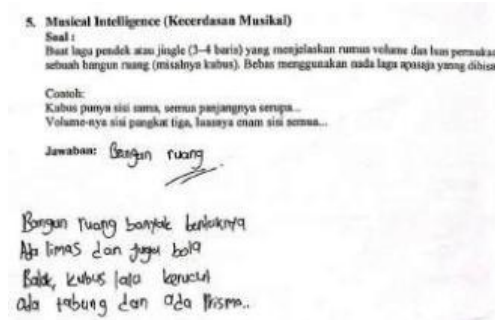 5. Musical Intelligence (Kecerdasan Musikal)
Soal :
Buat lagu pendek atau jingle (3–4 baris) yang menjelaskan rumus volume dan luas permukaa
sebuah bangun ruang (misalnya kubus). Bebas menggunakan nada lagu apasaja yanng dibisa
Contoh:
Kubus punya sisi sama, semua panjangnya serupa...
Volume-nya sisi pangkat tiga, luasnya enam sisi semua...
Jawaban: Bangun ruang
Bangun ruang banyak bentuknya
Ada limas dan juga bola
Balok, kubus lalu kerucut
ada tabung dan ada Prisma..